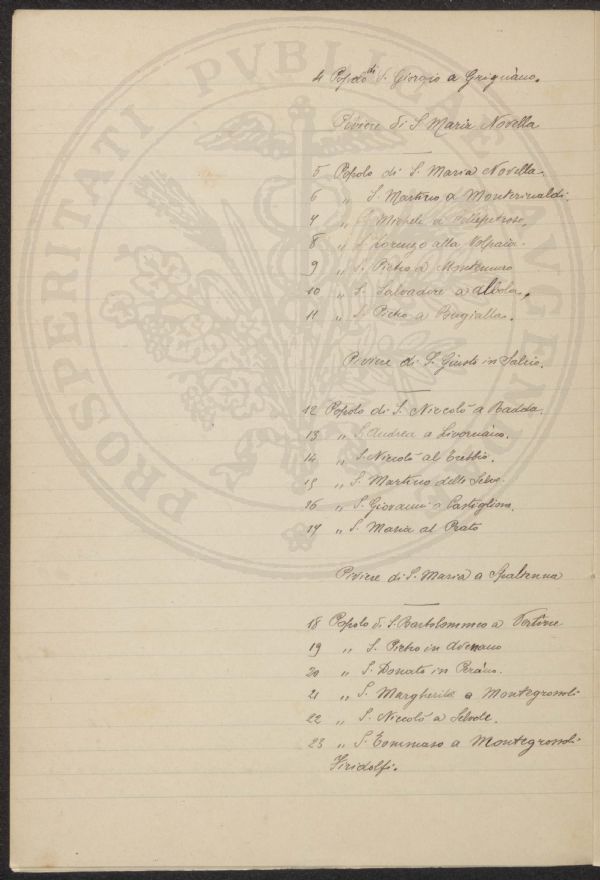 PROSPERITATI PVBLICAE AVGENDAE
4 Popolo di S. Giorgio a Grignano.
Piviere di S. Maria Novella
5 Popolo di S. Maria Novella.
6 „ S. Martino a Monterinaldi.
7 „ S. Michele a Collepetroso,
8 „ S. Lorenzo alla Volpaia.
9 „ S. Pietro a Montemuro
10 „ S. Salvadore a Albola,
11 „ S. Pietro a Bugialla.
Piviere di S. Giusto in Salcio.
12 Popolo di S. Niccolò a Radda.
13 „ S. Andrea a Livornano.
14 „ S. Niccolò al Trebbio.
15 „ S. Martino delle Selve.
16 „ S. Giovanni a Castiglione.
17 „ S. Maria al Prato
Piviere di S. Maria a Spaltenna
18 Popolo di S. Bartolommeo a Vertine
19 „ S. Pietro in Avenano
20 „ S. Donato in Perano.
21 „ S. Margherita a Montegrossoli
22 „ S. Niccolò a Selvole.
23 „ S. Tommaso a Montegrossoli
Firidolfi.